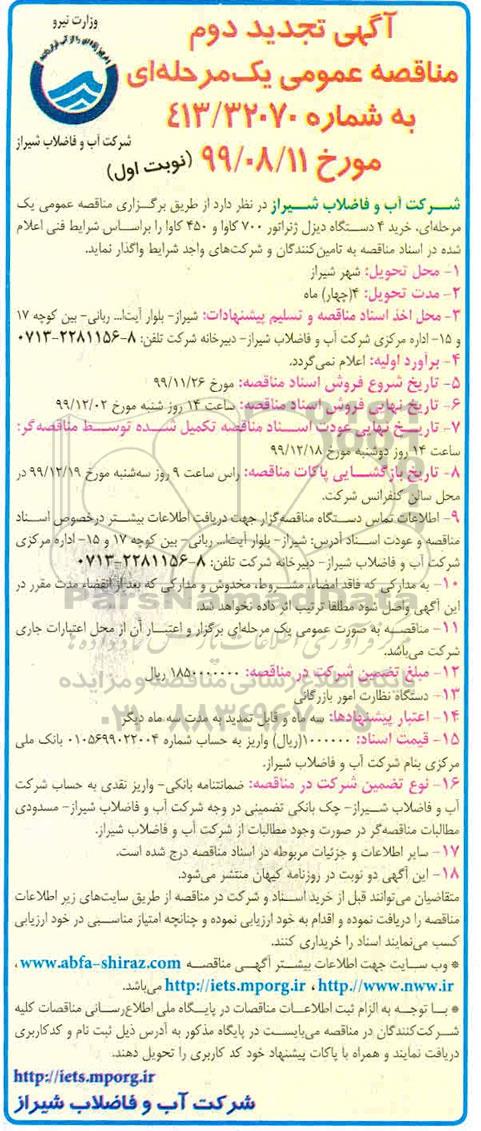 وزارت نیرو
شرکت آب و فاضلاب شیراز
آگهی تجدید دوم
مناقصه عمومی یک‌مرحله‌ای
به شماره ۴۱۳/۳۲۰۷۰
مورخ ۹۹/۰۸/۱۱ (نوبت اول)
شرکت آب و فاضلاب شیراز در نظر دارد از طریق برگزاری مناقصه عمومی یک
مرحله‌ای، خرید ۴ دستگاه دیزل ژنراتور ۷۰۰ کاوا و ۴۵۰ کاوا را براساس شرایط فنی اعلام
شده در اسناد مناقصه به تامین‌کنندگان و شرکت‌های واجد شرایط واگذار نماید.
۱- محل تحویل: شهر شیراز
۲- مدت تحویل: ۴(چهار) ماه
۳- محل اخذ اسناد مناقصه و تسلیم پیشنهادات: شیراز- بلوار آیت‌ا... ربانی- بین کوچه ۱۷
و ۱۵- اداره مرکزی شرکت آب و فاضلاب شیراز- دبیرخانه شرکت تلفن: ۸-۲۲۸۱۱۵۶-۰۷۱۳
۴- برآورد اولیه: اعلام نمی‌گردد.
۵- تاریخ شروع فروش اسناد مناقصه: مورخ ۹۹/۱۱/۲۶
۶- تاریخ نهایی فروش اسناد مناقصه: ساعت ۱۴ روز شنبه مورخ ۹۹/۱۲/۰۲
۷- تاریخ نهایی عودت اسناد مناقصه تکمیل شده توسط مناقصه‌گر:
ساعت ۱۴ روز دوشنبه مورخ ۹۹/۱۲/۱۸
۸- تاریخ بازگشایی پاکات مناقصه: راس ساعت ۹ روز سه‌شنبه مورخ ۹۹/۱۲/۱۹ در
محل سالن کنفرانس شرکت.
۹- اطلاعات تماس دستگاه مناقصه‌گزار جهت دریافت اطلاعات بیشتر درخصوص اسناد
مناقصه و عودت اسناد آدرس: شیراز- بلوار آیت‌ا... ربانی- بین کوچه ۱۷ و ۱۵- اداره مرکزی
شرکت آب و فاضلاب شیراز- دبیرخانه شرکت تلفن: ۸-۲۲۸۱۱۵۶-۰۷۱۳
۱۰- به مدارکی که فاقد امضاء، مشروط، مخدوش و مدارکی که بعد از انقضاء مدت مقرر در
این آگهی واصل شود مطلقا ترتیب اثر داده نخواهد شد.
۱۱- مناقصه به صورت عمومی یک مرحله‌ای برگزار و اعتبار آن از محل اعتبارات جاری
شرکت می‌باشد.
۱۲- مبلغ تضمین شرکت در مناقصه: ۱۸۵۰۰۰۰۰۰۰ ریال
۱۳- دستگاه نظارت امور بازرگانی
۱۴- اعتبار پیشنهادها: سه ماه و قابل تمدید به مدت سه ماه دیگر
۱۵- قیمت اسناد: ۱۰۰۰۰۰۰(ریال) واریز به حساب شماره ۰۱۰۵۶۹۹۰۲۲۰۰۴ بانک ملی
مرکزی بنام شرکت آب و فاضلاب شیراز.
۱۶- نوع تضمین شرکت در مناقصه: ضمانتنامه بانکی- واریز نقدی به حساب شرکت
آب و فاضلاب شیراز- چک بانکی تضمینی در وجه شرکت آب و فاضلاب شیراز- مسدودی
مطالبات مناقصه‌گر در صورت وجود مطالبات از شرکت آب و فاضلاب شیراز.
۱۷- سایر اطلاعات و جزئیات مربوطه در اسناد مناقصه درج شده است.
۱۸- این آگهی دو نوبت در روزنامه کیهان منتشر می‌شود.
متقاضیان می‌توانند قبل از خرید اسناد و شرکت در مناقصه از طریق سایت‌های زیر اطلاعات
مناقصه را دریافت نموده و اقدام به خود ارزیابی نموده و چنانچه امتیاز مناسبی در خود ارزیابی
کسب می‌نمایند اسناد را خریداری کنند.
* وب سایت جهت اطلاعات بیشتر آگهی مناقصه www.abfa-shiraz.com،
http://iets.mporg.ir ، http://www.nww.ir می‌باشد.
* با توجه به الزام ثبت اطلاعات مناقصات در پایگاه ملی اطلاع‌رسانی مناقصات کلیه
شرکت‌کنندگان در مناقصه می‌بایست در پایگاه مذکور به آدرس ذیل ثبت نام و کدکاربری
دریافت نمایند و همراه با پاکات پیشنهاد خود کد کاربری را تحویل دهند.
http://iets.mporg.ir
شرکت آب و فاضلاب شیراز